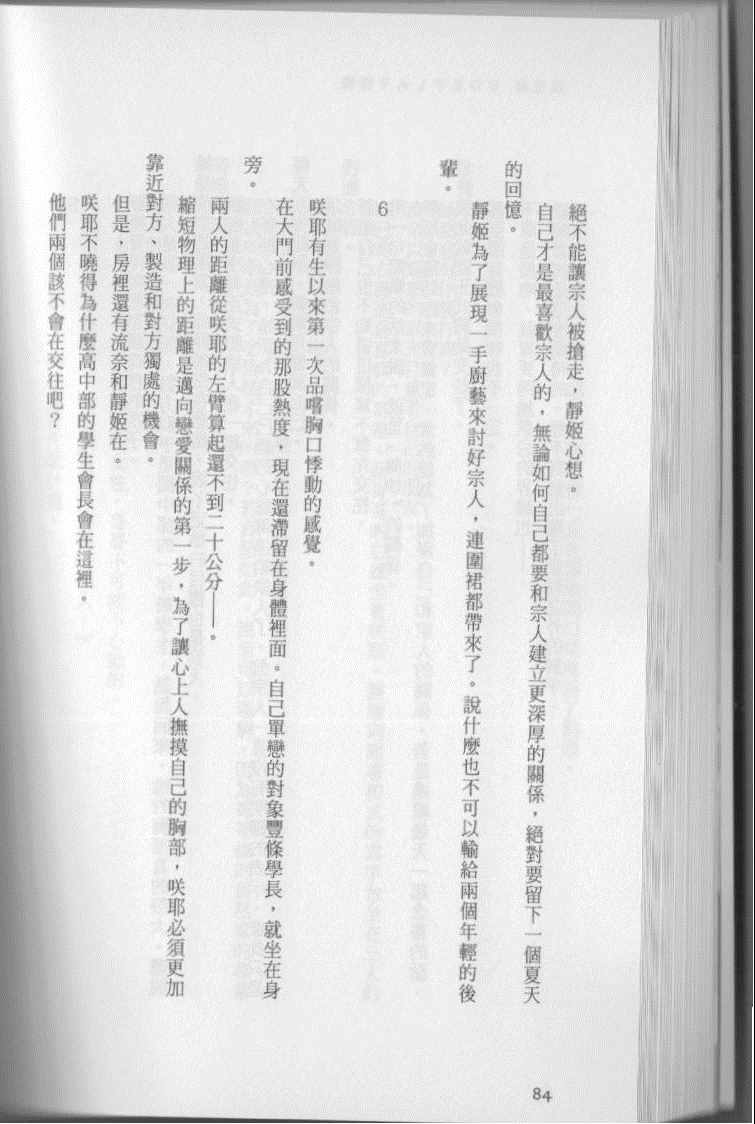 絕不能讓宗人被搶走，靜姬心想。
自己才是最喜歡宗人的，無論如何自己都要和宗人建立更深厚的關係，絕對要留下一個夏天
的回憶。
靜姬為了展現一手廚藝來討好宗人，連圍裙都帶來了。說什麼也不可以輸給兩個年輕的後
輩。
6
咲耶有生以來第一次品嚐胸口悸動的感覺。
在大門前感受到的那股熱度，現在還滯留在身體裡面。自己單戀的對象豐條學長，就坐在身
旁。
兩人的距離從咲耶的左臂算起還不到二十公分——。
縮短物理上的距離是邁向戀愛關係的第一步，為了讓心上人撫摸自己的胸部，咲耶必須更加
靠近對方、製造和對方獨處的機會。
但是，房裡還有流奈和靜姬在。
咲耶不曉得為什麼高中部的學生會長會在這裡。
他們兩個該不會在交往吧？
84